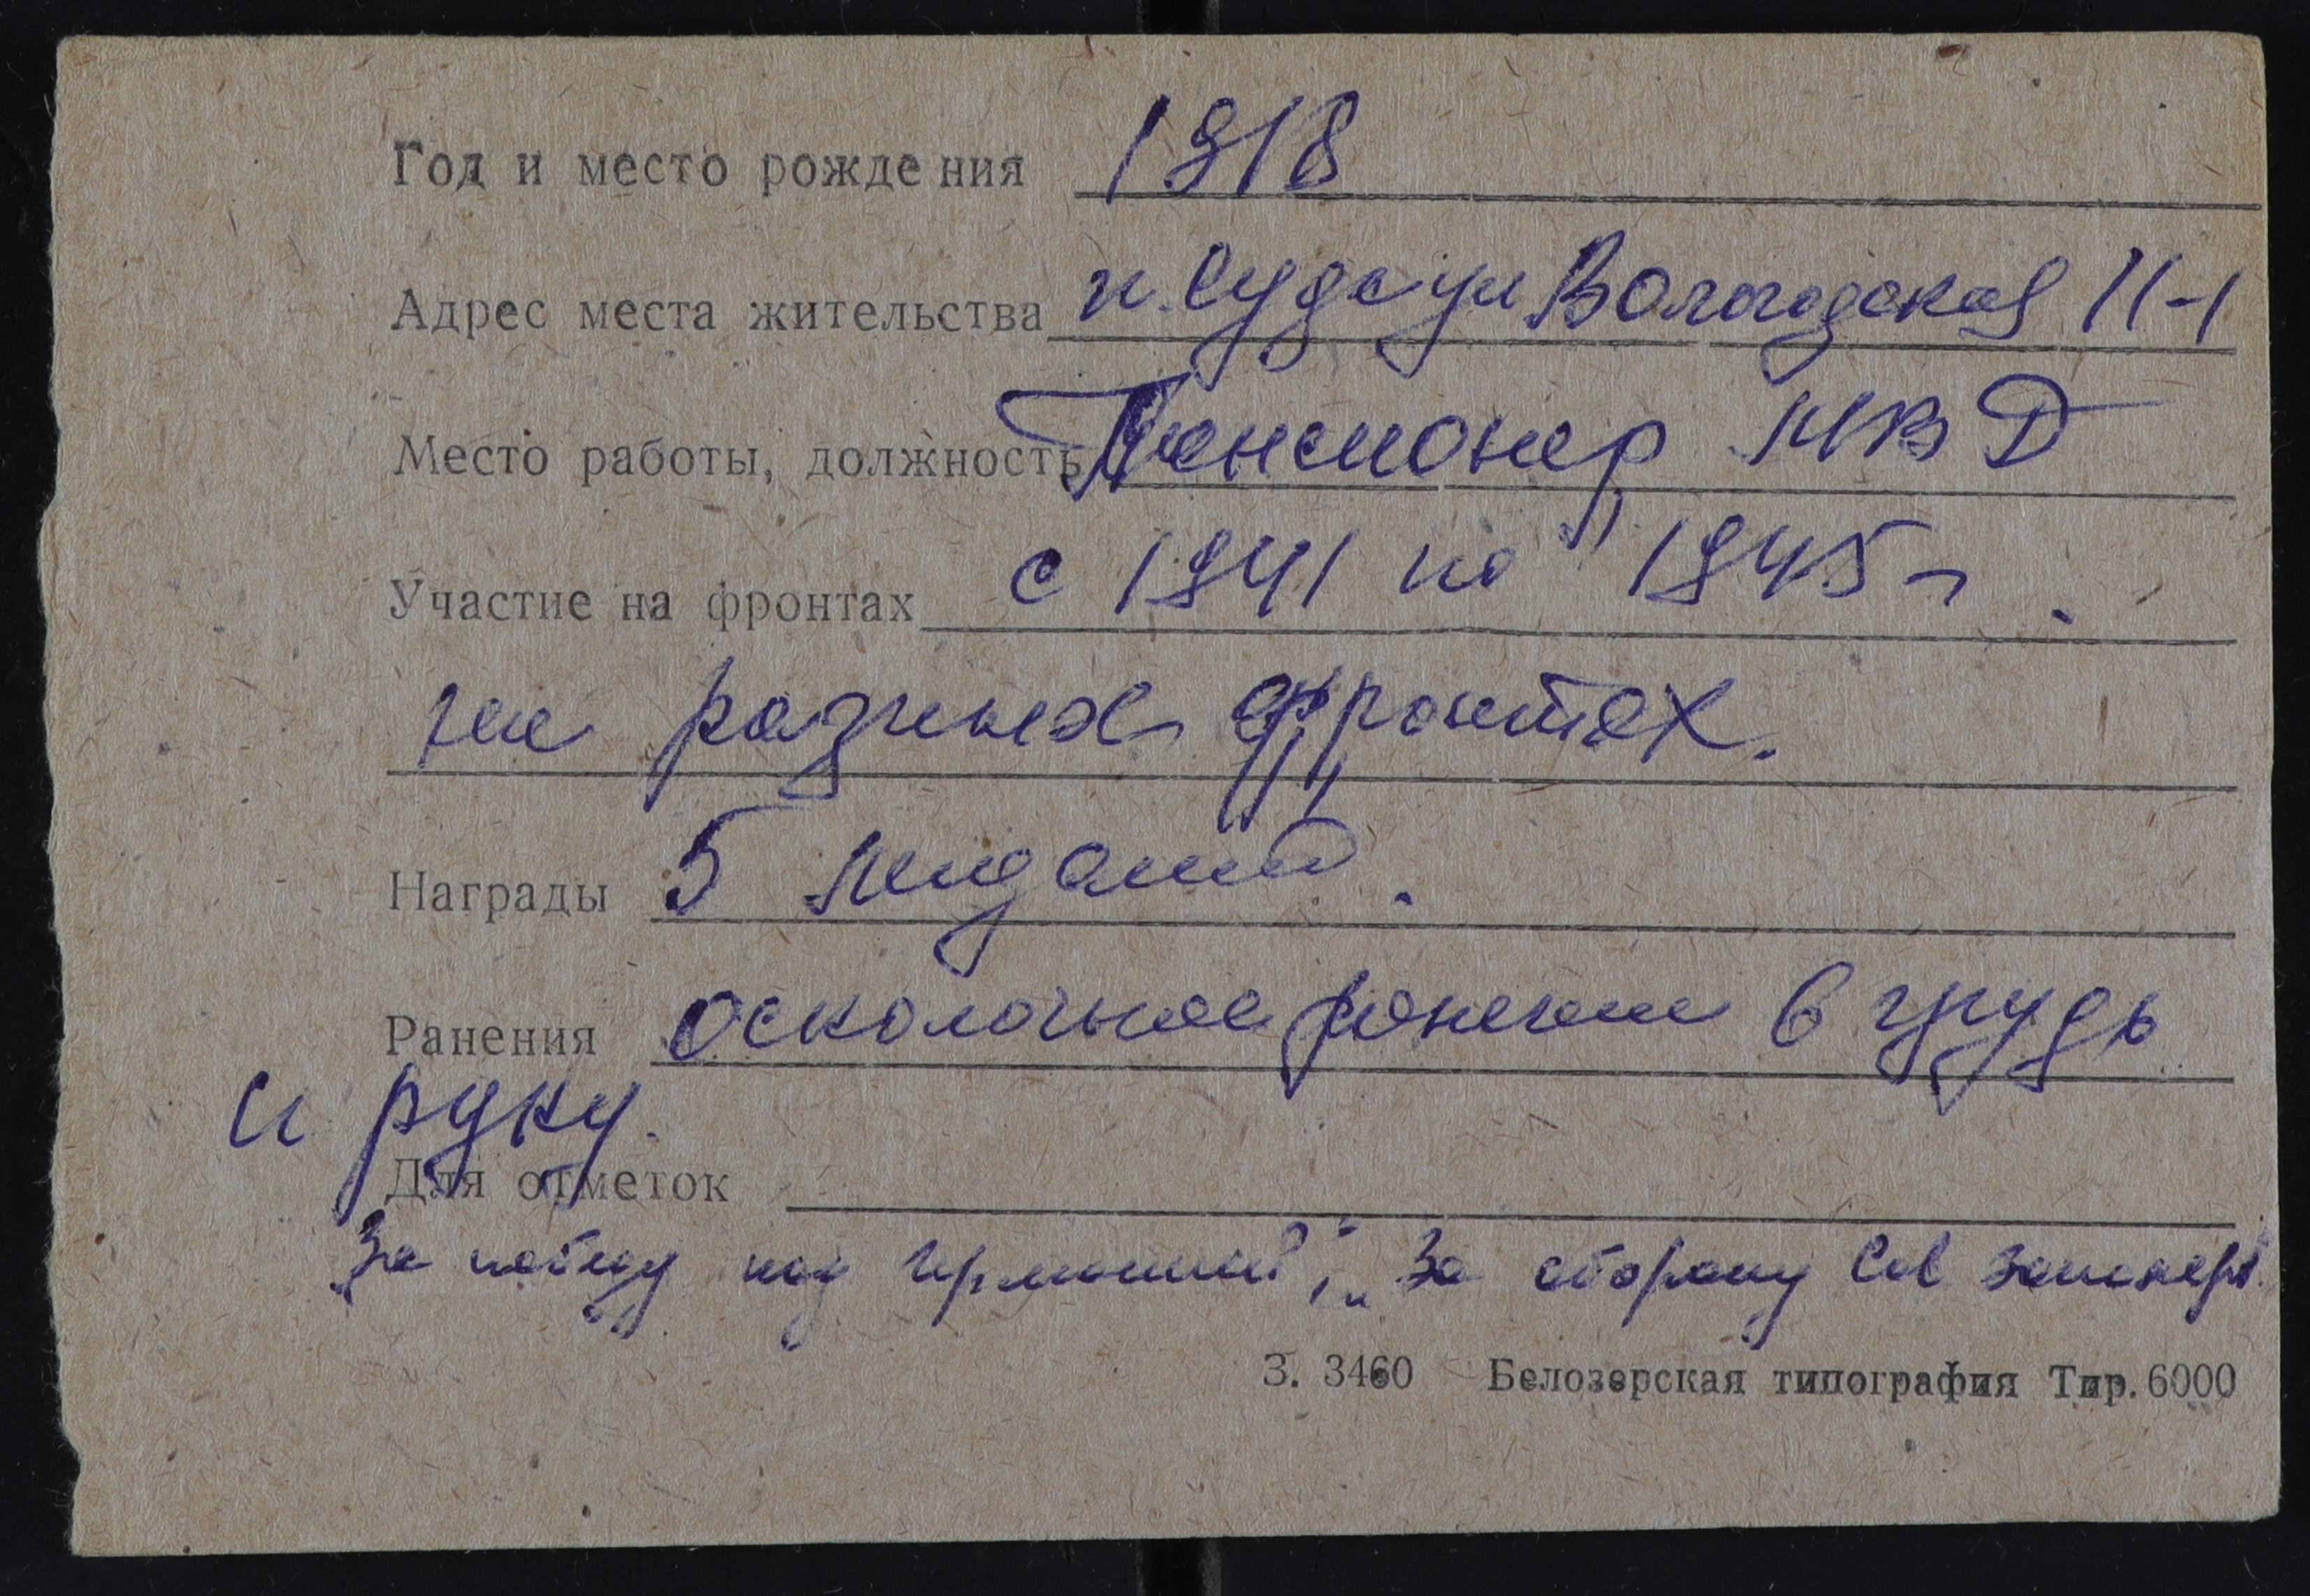 Год и место рождения 1918
Адрес места жительства п. Суда ул Вологодская 11-1
Место работы, должность Пенсионер МВД
Участие на фронтах с 1941 по 1945 г.
на разных фронтах.
Награды 5 медалей.
Ранения осколочное ранение в грудь
и руку.
Для отметок
„За победу над Германией", „За оборону Сов Заполяр"
З. 3460 Белозерская типография Тир. 6000